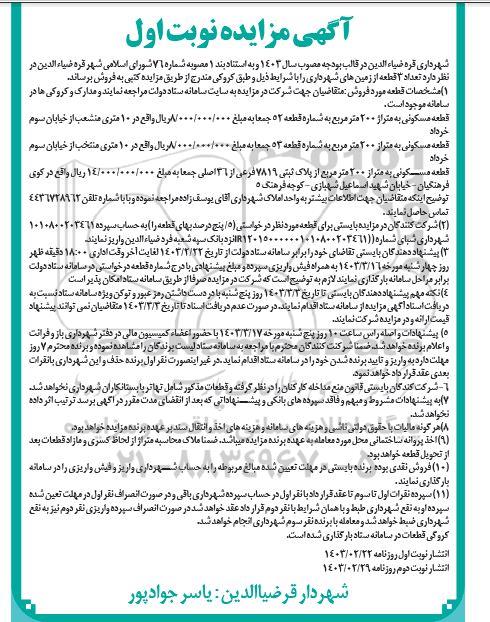 آگهی مزایده نوبت اول
شهرداری قره ضیاء الدین در قالب بودجه مصوب سال ۱۴۰۳ و به استناد بند ۱ مصوبه شماره ۷۶ شورای اسلامی شهر قره ضیاء الدین در
نظر دارد تعداد ۳ قطعه از زمین های شهرداری را با شرایط ذیل و طبق کروکی مندرج از طریق مزایده کتبی به فروش برساند.
۱) مشخصات قطعه مورد فروش : متقاضیان جهت شرکت در مزایده به سایت سامانه ستاد دولت مراجعه نمایند و مدارک و کروکی ها در
سامانه موجود است.
قطعه مسکونی به متراژ ۲۰۰ متر مربع به شماره قطعه ۵۲ جمعا به مبلغ ۸/۰۰۰/۰۰۰/۰۰۰ ریال واقع در ۱۰ متری منشعب از خیابان سوم
خرداد
قطعه مسکونی به متراژ ۲۰۰ متر مربع به شماره قطعه ۵۳ جمعا به مبلغ ۸/۰۰۰/۰۰۰/۰۰۰ ریال واقع در ۱۰ متری منتخب از خیابان سوم
خرداد
قطعه مسکونی به متراژ ۲۰۰ متر مربع از پلاک ثبتی ۷۸۱۹ فرعی از ۳۶ اصلی جمعا به مبلغ ۱۴/۰۰۰/۰۰۰/۰۰۰ ریال واقع در کوی
فرهنگیان - خیابان شهید اسماعیل شهبازی - کوچه فرهنگ ۵
توضیح اینکه متقاضیان جهت اطلاعات بیشتر به واحد املاک شهرداری آقای یوسف زاده مراجعه نموده و یا با شماره تلفن ۴۴۳۶۷۲۸۶۶۲
تماس حاصل نمایند.
۲) شرکت کنندگان در مزایده بایستی برای قطعه مورد نظر درخواستی (۵/ پنج درصد بهای قطعه را) به حساب سپرده ۱۰۱۰۸۰۰۲۰۳۴۶۱
شهرداری شبای شماره نزد بانک سپه شعبه فرد ضیاء الدین واریز نمایند.
۳) پیشنهاد دهندگان بایستی تقاضای خود را برابر سامانه ستاد دولت از تاریخ ۱۴۰۳/۲/۲۲ لغایت آخر وقت اداری ۱۸:۰۰ دقیقه ظهر
روز چهار شنبه مورخه ۱۴۰۳/۳/۱۶ به همراه فیش واریزی سپرده و مبلغ پیشنهادی با درج شماره قطعه درخواستی در سامانه ستاد دولت
برابر مراحل سامانه بارگذاری نمایند لازم به توضیح است که شرکت در مزایده صرفا از طریق سامانه ستاد امکان پذیر است
۴) نکته مهم پیشنهاد دهندگان بایستی تا تاریخ ۱۴۰۳/۳/۳ روز پنج شنبه با در دست داشتن رمز عبور و توکن ویژه سامانه ستاد نسبت به
دریافت اسناد آگهی مزایده از سامانه ستاد اقدام نمایند. در صورت عدم دریافت اسناد تا تاریخ ۱۴۰۳/۳/۳ متقاضیان نمی توانند پیشنهاد
قیمت ارائه و در مزایده شرکت نمایند.
۵) پیشنهادات واصله راس ساعت ۱۰ روز پنج شنبه مورخه ۱۴۰۳/۳/۱۷ با حضور اعضاء کمیسیون مالی در دفتر شهرداری باز و قرائت
و اعلام برنده خواهد شد. ضمنا شرکت کنندگان محترم با مراجعه به سامانه ستاد لیست برندگان را مشاهده نموده و برنده محترم ۷ روز
مهلت دارد به واریز و تایید برنده شدن خود را در سامانه ستاد اقدام نماید. در غیر اینصورت نفر اول برنده حذف و این شهرداری با نفرات
بعدی عقد قرارداد خواهد نمود.
۶- شرکت کنندگان بایستی قانون منع مداخله کارکنان را در نظر گرفته و قطعات مذکور شامل تهاتر با بستانکاران شهرداری نخواهد شد.
۷) به پیشنهادات مشروط و مبهم و فاقد سپرده های بانکی و پیشنهاداتی که بعد از انقضای مدت مقرر در آگهی برسد ترتیب اثر داده
نخواهد شد.
۸) هر گونه مالیات با حقوق دولتی ناشی و هزینه های سامانه و هزینه های اخذ و انتقال سند بر عهده برنده مزایده خواهد بود.
۹) اخذ پروانه ساختمانی محل مورد معامله به عهده برنده مزایده میباشد. ضمنا ملاک محاسبه متراژ از لحاظ کسری و مازاد قطعات بعد
از تحویل قطعه خواهد بود.
۱۰) فروش نقدی بوده برنده بایستی در مهلت تعیین شده مبالغ مربوطه را به حساب شهرداری واریز و فیش واریزی را در سامانه
بارگذاری نمایند.
۱۱) سپرده نفرات اول تا سوم تا عقد قرار داد با نفر اول در حساب سپرده شهرداری باقی و در صورت انصراف نفر اول در مهلت تعین شده
سپرده او به نفع شهرداری ضبط و با همان شرایط با نفر دوم قرار داد عقد خواهد شد در صورت انصراف سپرده واریزی نفر دوم نیز به نفع
شهرداری ضبط خواهد شد و معامله با برنده نفر سوم شهرداری انجام خواهد شد.
کروکی قطعات در سامانه ستاد بارگذاری شده است.
انتشار نوبت اول روزنامه ۱۴۰۳/۰۲/۲۲
انتشار نوبت دوم روزنامه ۱۴۰۳/۰۲/۲۹
شهردار قرضیاالدین : یاسر جوادپور